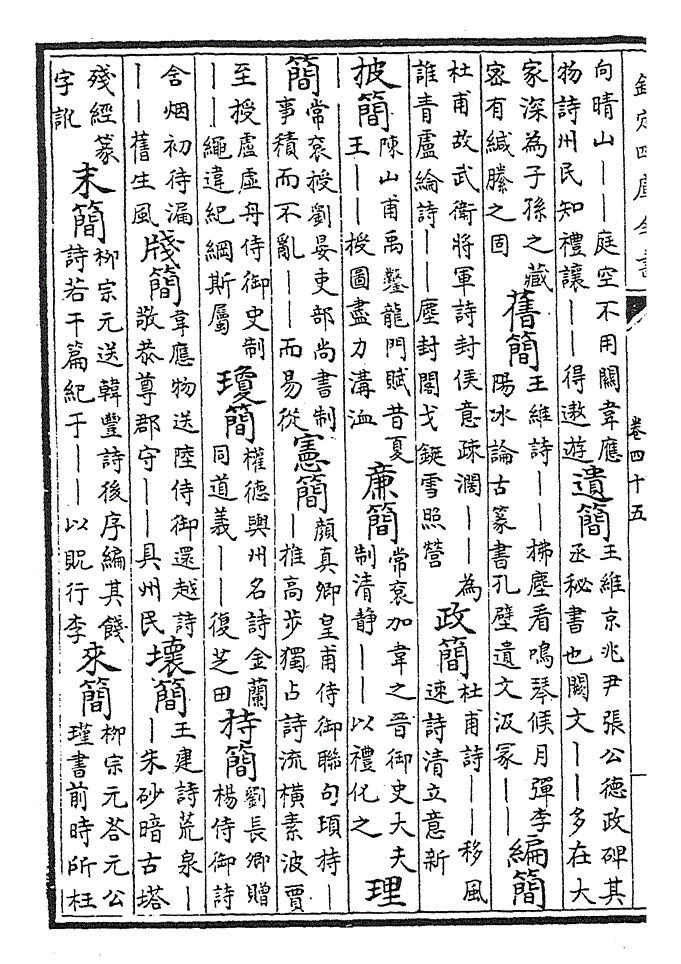 欽定四庫全書
卷四十五
向晴山丨丨庭空不用關韋應
物詩州民知禮讓丨丨得遨遊
遺簡
王維京兆尹張公德政碑其
丞秘書也闕文丨丨多在大
家深為子孫之藏
宻有緘縢之固
舊簡
王維詩丨丨拂塵看鳴琴候月彈李
陽冰論古篆書孔壁遺文汲冢丨丨
編簡
杜甫故武衛將軍詩封侯意疎濶丨丨為
誰青盧綸詩丨丨塵封閣戈鋋雪照營
政簡
杜甫詩丨丨移風
速詩清立意新
披簡
陳山甫禹鑿龍門賦昔夏
王丨丨授圖盡力溝洫
亷簡
常衮加韋之晉御史大夫
制清静丨丨以禮化之
理
簡
常衮授劉晏吏部尚書制
事積而不亂丨丨而易從
憲簡
顔真卿皇甫侍御聯句頃持丨
丨推高步獨占詩流橫素波賈
至授盧虛舟侍御史制
丨丨繩違紀綱斯屬
瓊簡
權德輿州名詩金蘭
同道義丨丨復芝田
持簡
劉長卿贈
楊侍御詩
含烟初待漏
丨丨舊生風
牋簡
韋應物送陸侍御還越詩
敬恭尊郡守丨丨具州民
壞簡
王建詩荒泉丨
丨朱砂暗古塔
殘經篆
字訛
末簡
柳宗元送韓豐詩後序編其餞
詩若干篇紀于丨丨以貺行李
來簡
柳宗元荅元公
瑾書前時所枉